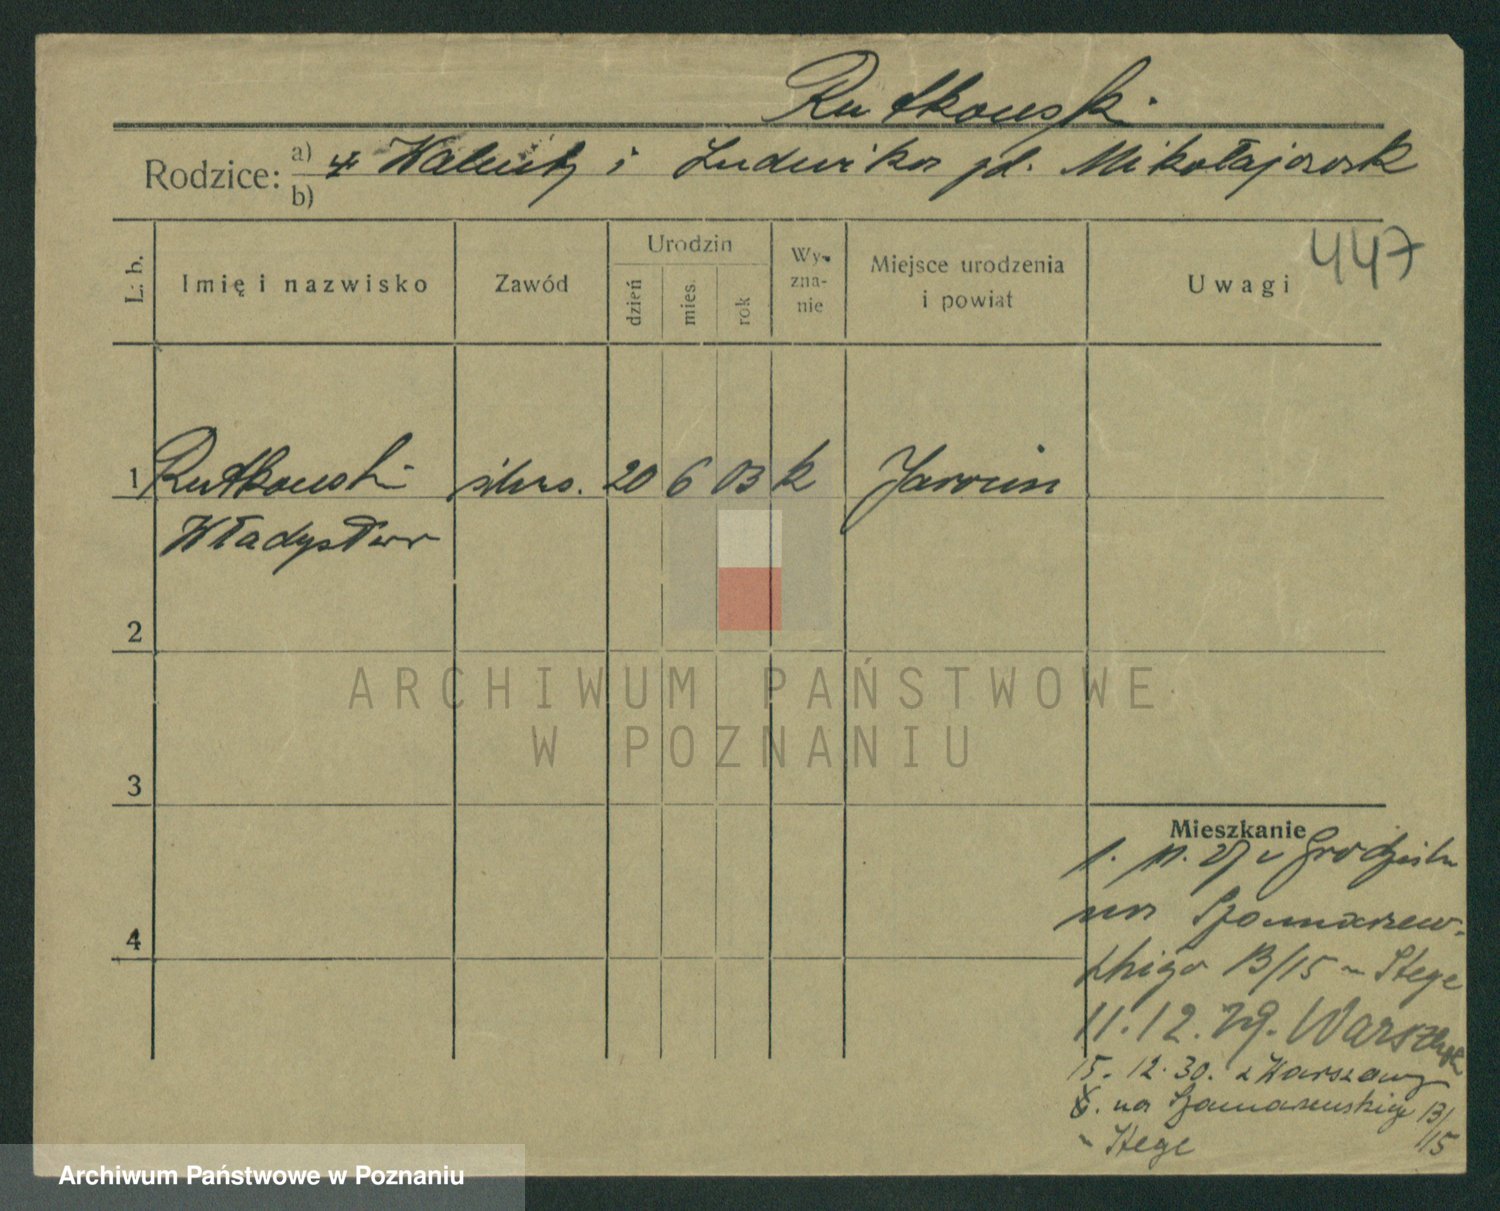 Rutkowski
Rodzice: a) Walenty i Ludwika zd. Mikołajczak
b)
L. b.
Imię i nazwisko
Zawód
Urodzin
dzień
mies.
rok
Wy-
zna-
nie
Miejsce urodzenia
i powiat
Uwagi
447
1 Rutkowski ślus. 20 6 03 k Jarocin
Władysław
2
3
4
Mieszkanie
z Grodziska
na Szamarzew-
skiego 13/15 - Stege
11. 12. 29. Warszawa
15. 12. 30. z Warszawy
na Szamarzewskiego 13/
15
- Stege
ARCHIWUM PAŃSTWOWE
W POZNANIU
Archiwum Państwowe w Poznaniu